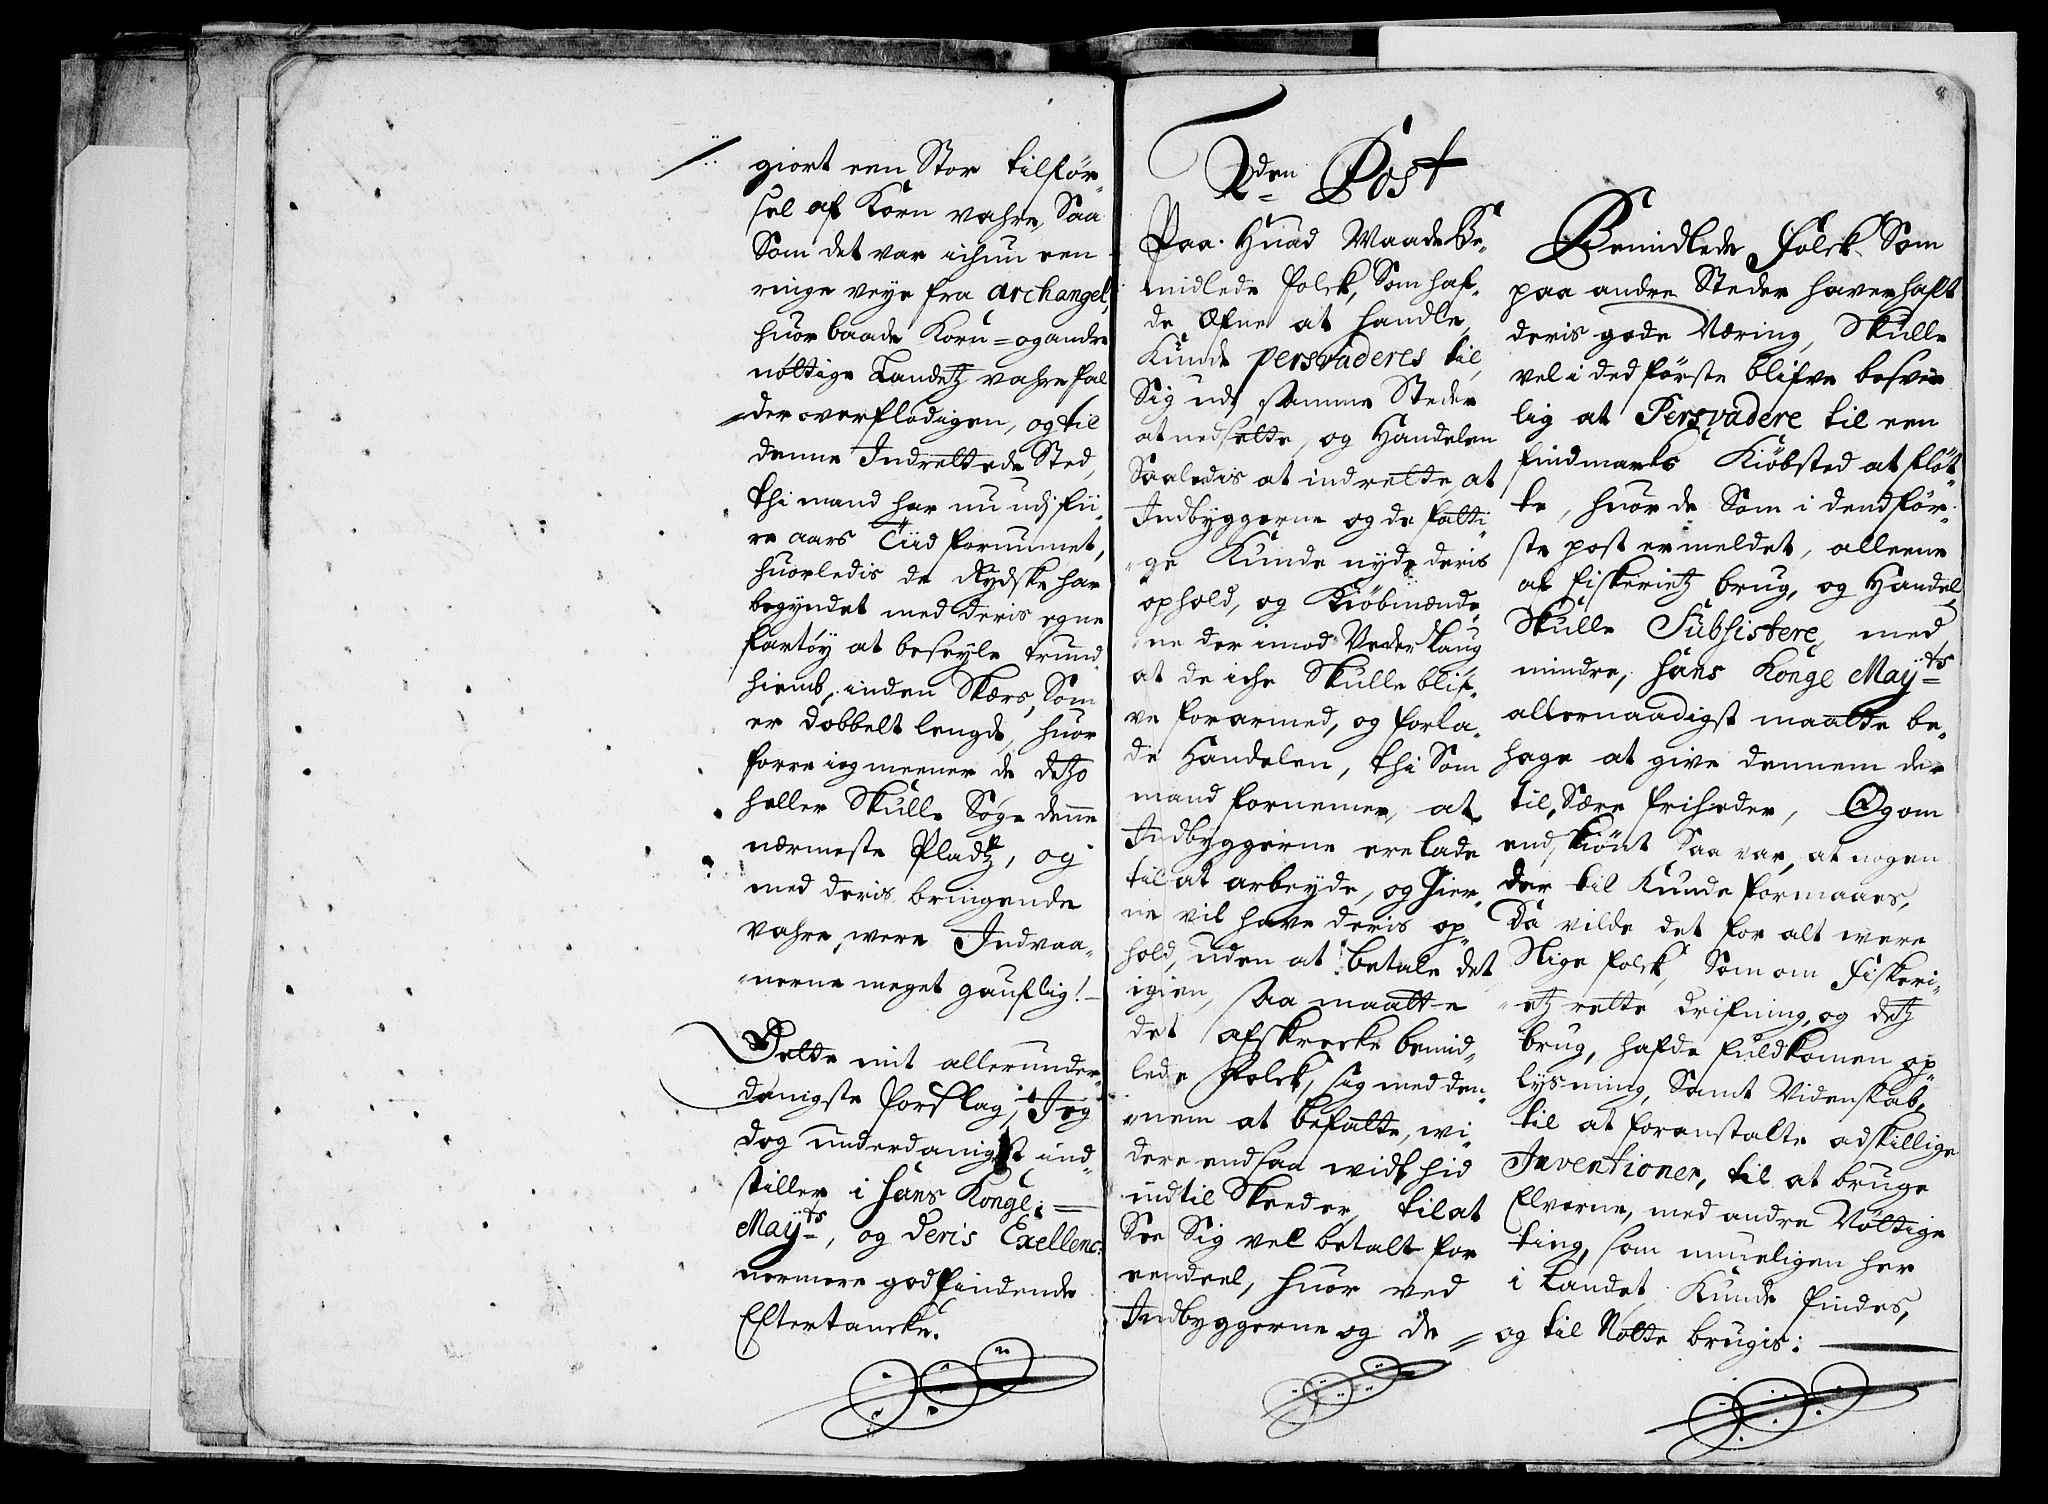 giort een Stor tilför-
sel af Korn vahre, Saa
Som det var ichun een
ringe veye fra Archangel,
huor baade Korn= og andre
nöttige Landetz vahre fal
der overflödigen, og til
denne Indrettede Sted,
thi mand har nu udj fii-
re aars Tiid fornummet,
huorledis de Rydske har
begyndet med deris egne
fartöy at beseyle trund-
hiemb, inden Skærs, Som
er dobbelt lengde, huor
forre ieg meener de detzo
heller Skulle Söge denne
nærmeste Pladtz, og
med deris bringende
vahre, were Indvaa-
nerne meget gauflig!
Dette mit allerunder-
danigste forslag, Jeg
dog underdanigst ind-
stiller i hans Kongl:
Maytts, og deris Exellenc:
nermere godfindende
Eftertancke.
2den Post
Paa Huad Maade Be-
midlede folck, Som haf-
de Efne at handle,
Kunde persvaderes til,
Sig udj samme Steder
at nedsette, og Handelen
Saaledis at indrette, at
Indbyggerne og de fatti-
ge Kunde nyde deris
ophold, og Kiöbmænde-
ne der imod Vederlaug
at de iche Skulle blif-
ve forarmed, og forla-
de Handelen, thi Som
mand fornemer, at
Indbyggerne ere lade
til at arbeyde, og Gier-
ne vil have deris op-
hold, uden at betale det
igien, saa maatte
det afskrecke bemid-
lede folck, sig med den-
nem at befatte, vi-
dere end saa vidt hid
indtil Skeeder, til at
See Sig vel betalt for
eendeel, huor ved
Indbyggerne og de
Bemidlede folck Som
paa andre Steder haver haft
deris gode Næring, Skulle
vel i ded förste blifve besvær
lig at Persvadere til een
findmarks Kiöbsted at flöt
te, huor de Som i dend för-
ste post er meldet, alleene
af fiskerietz brug, og Handel,
Skulle Subsistere, med
mindre, hans Kongl Maytts
allernaadigst maatte be-
hage at give dennem der
til, Sære friheder, Og om
end skiönt Saa var, at nogen
der til Kunde formaaes,
Da vilde det for alt were
Slige folck, Som om fiskeri-
etz rette drifning, og detz
brug, hafde fuldkomen op-
lysning, Samt Videnskab,
til at foranstalte adskillige
Inventioner, til at bruge
Elverne, med andre Nöttige
ting, som mueligen her
i Landet Kunde findes,
og til Nötte brugis: